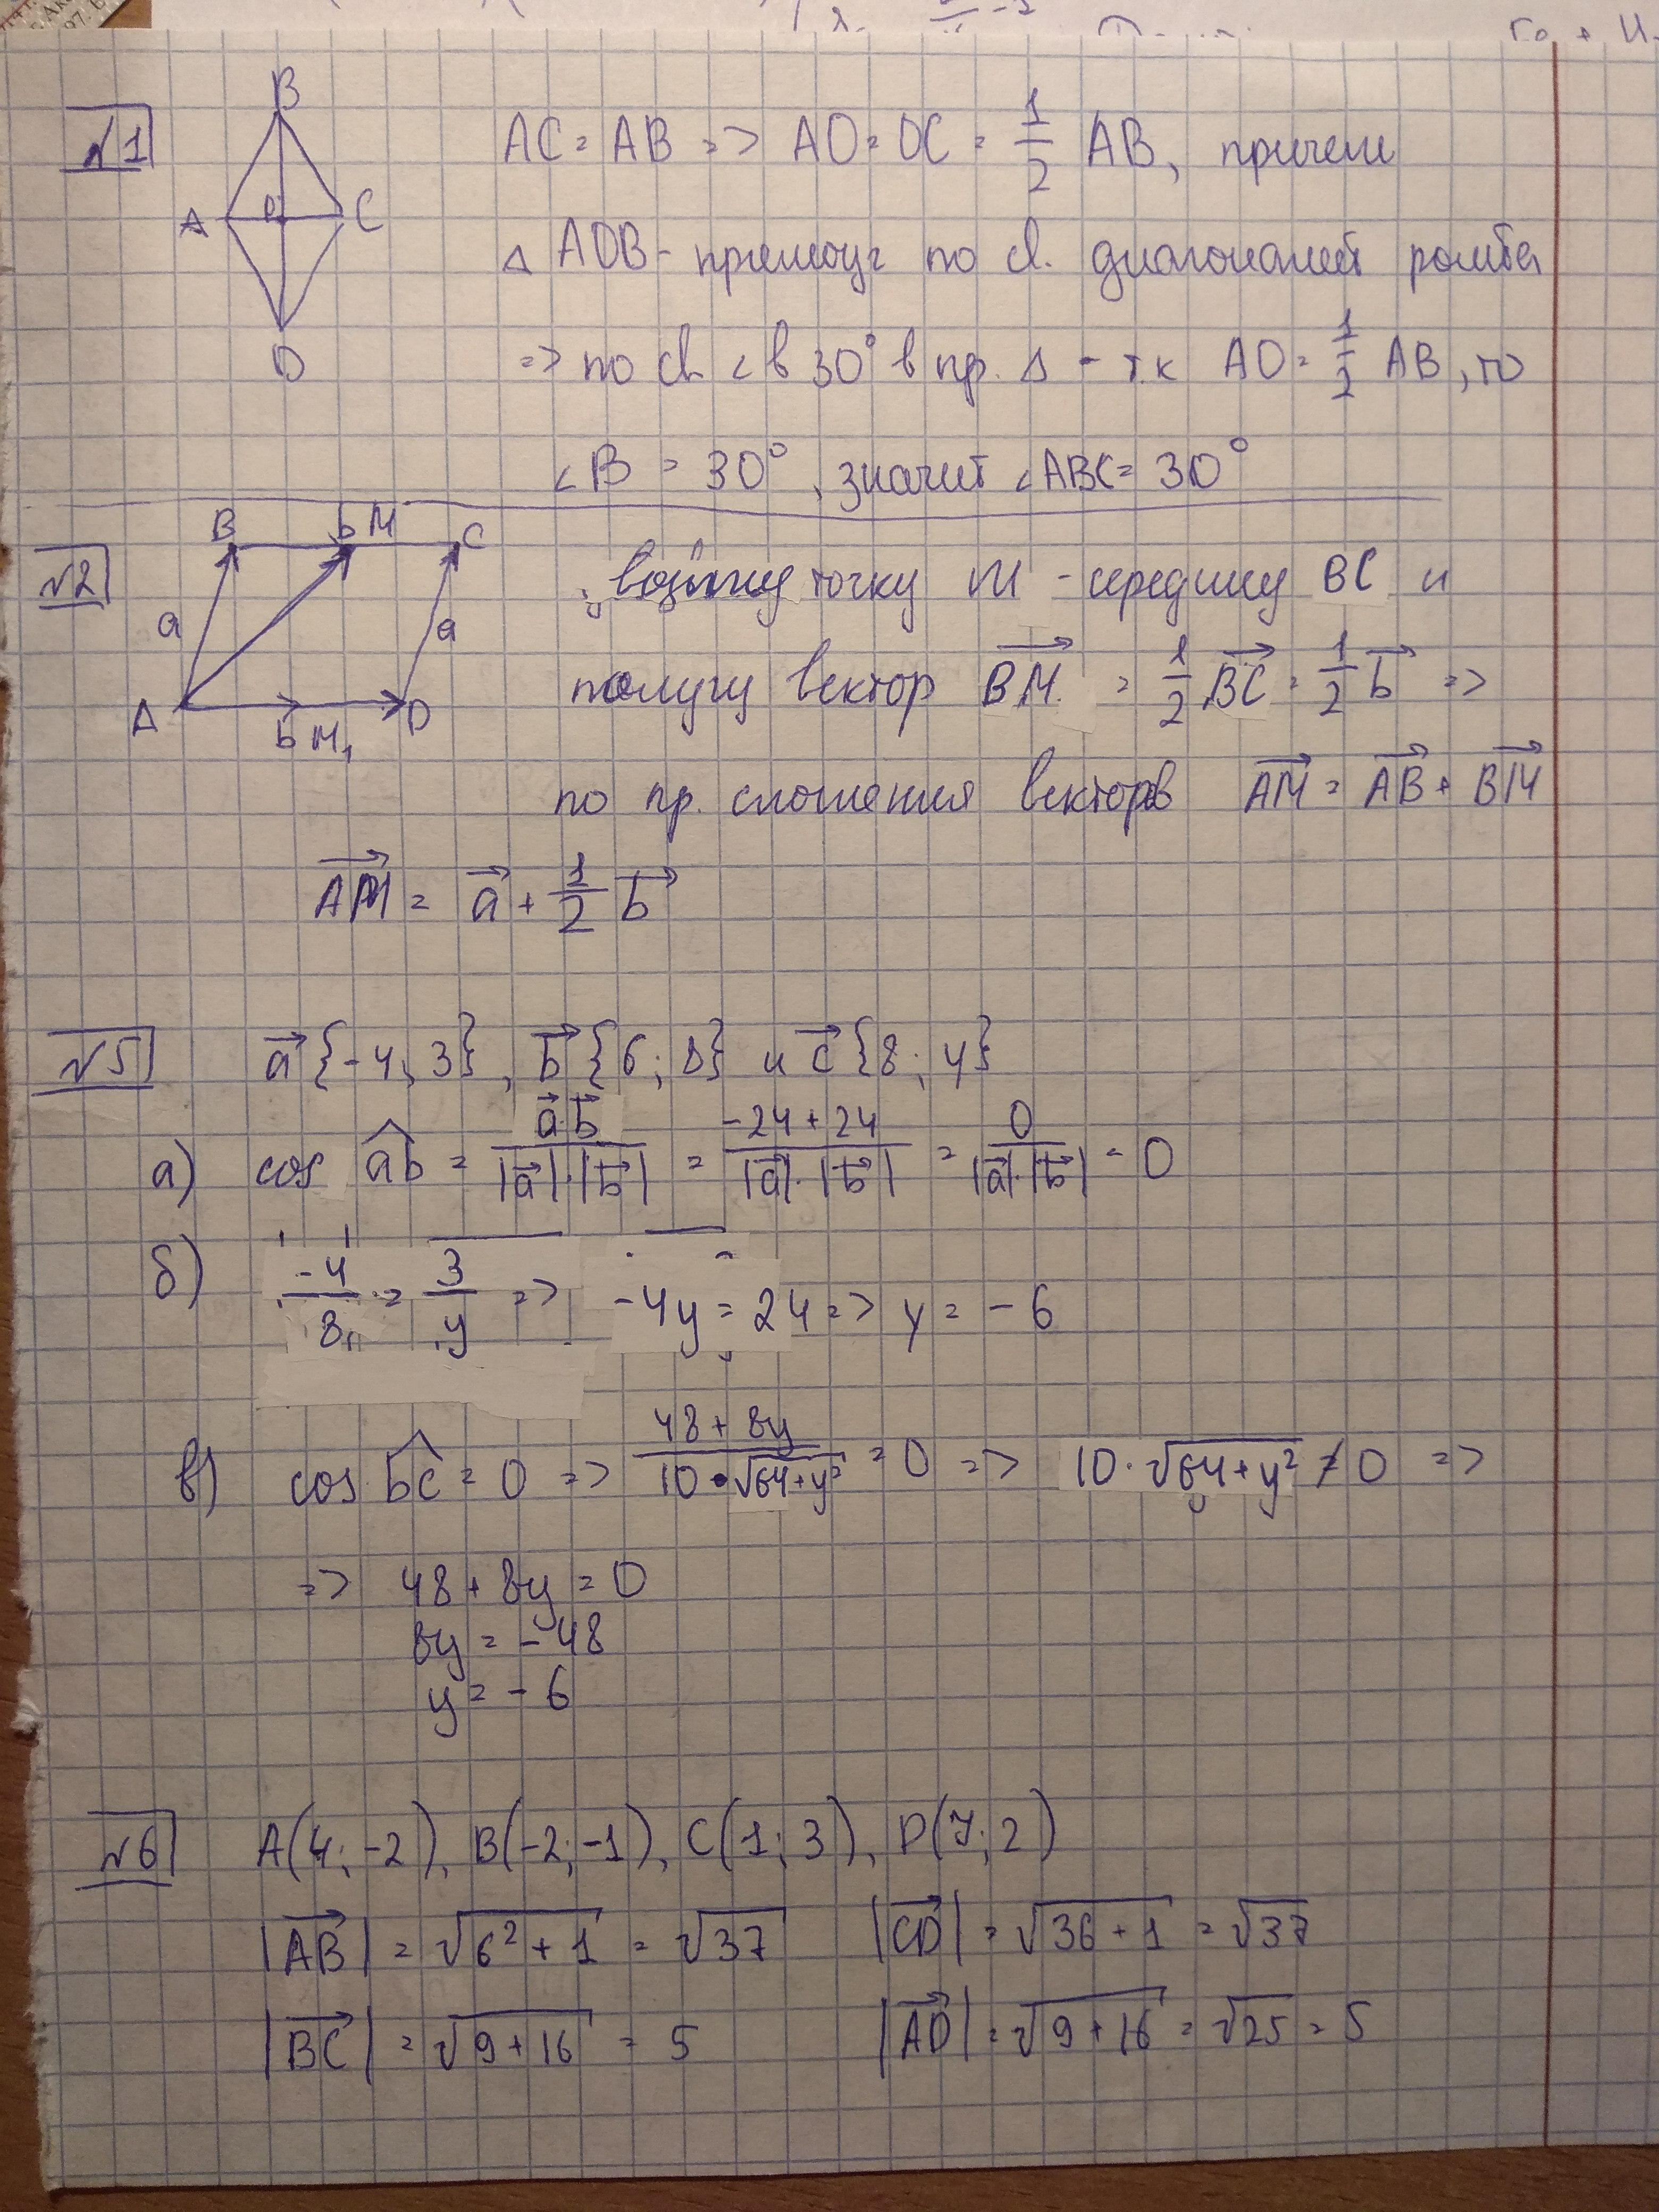 √1
B
A
O
C
D
AC = AB => AO = OC = 1/2 AB, причем
△ AOB - прямоуг по св. диагоналей ромба
=> по св ∠ в 30° в пр. △ - т.к AO = 1/2 AB, то
∠B = 30°, значит ∠ABC = 30°
√2
B b M C
a a
A b M₁ D
возьму точку M - середину BC и
получу вектор BM = 1/2 BC = 1/2 b =>
по пр. сложения векторов AM = AB + BM
AM = a + 1/2 b
√5 a {-4; 3}, b {6; 8} и c {8; y}
а) cos ab = a·b / |a|·|b| = -24 + 24 / |a|·|b| = 0 / |a|·|b| = 0
б) -4/8 = 3/y => -4y = 24 => y = -6
в) cos bc = 0 => 48 + 8y / 10·√64+y² = 0 => 10·√64+y² ≠ 0 =>
=> 48 + 8y = 0
8y = -48
y = -6
√6 A(4; -2), B(-2; -1), C(1; 3), D(7; 2)
|AB| = √6² + 1 = √37 |CD| = √36 + 1 = √37
|BC| = √9 + 16 = 5 |AD| = √9 + 16 = √25 = 5